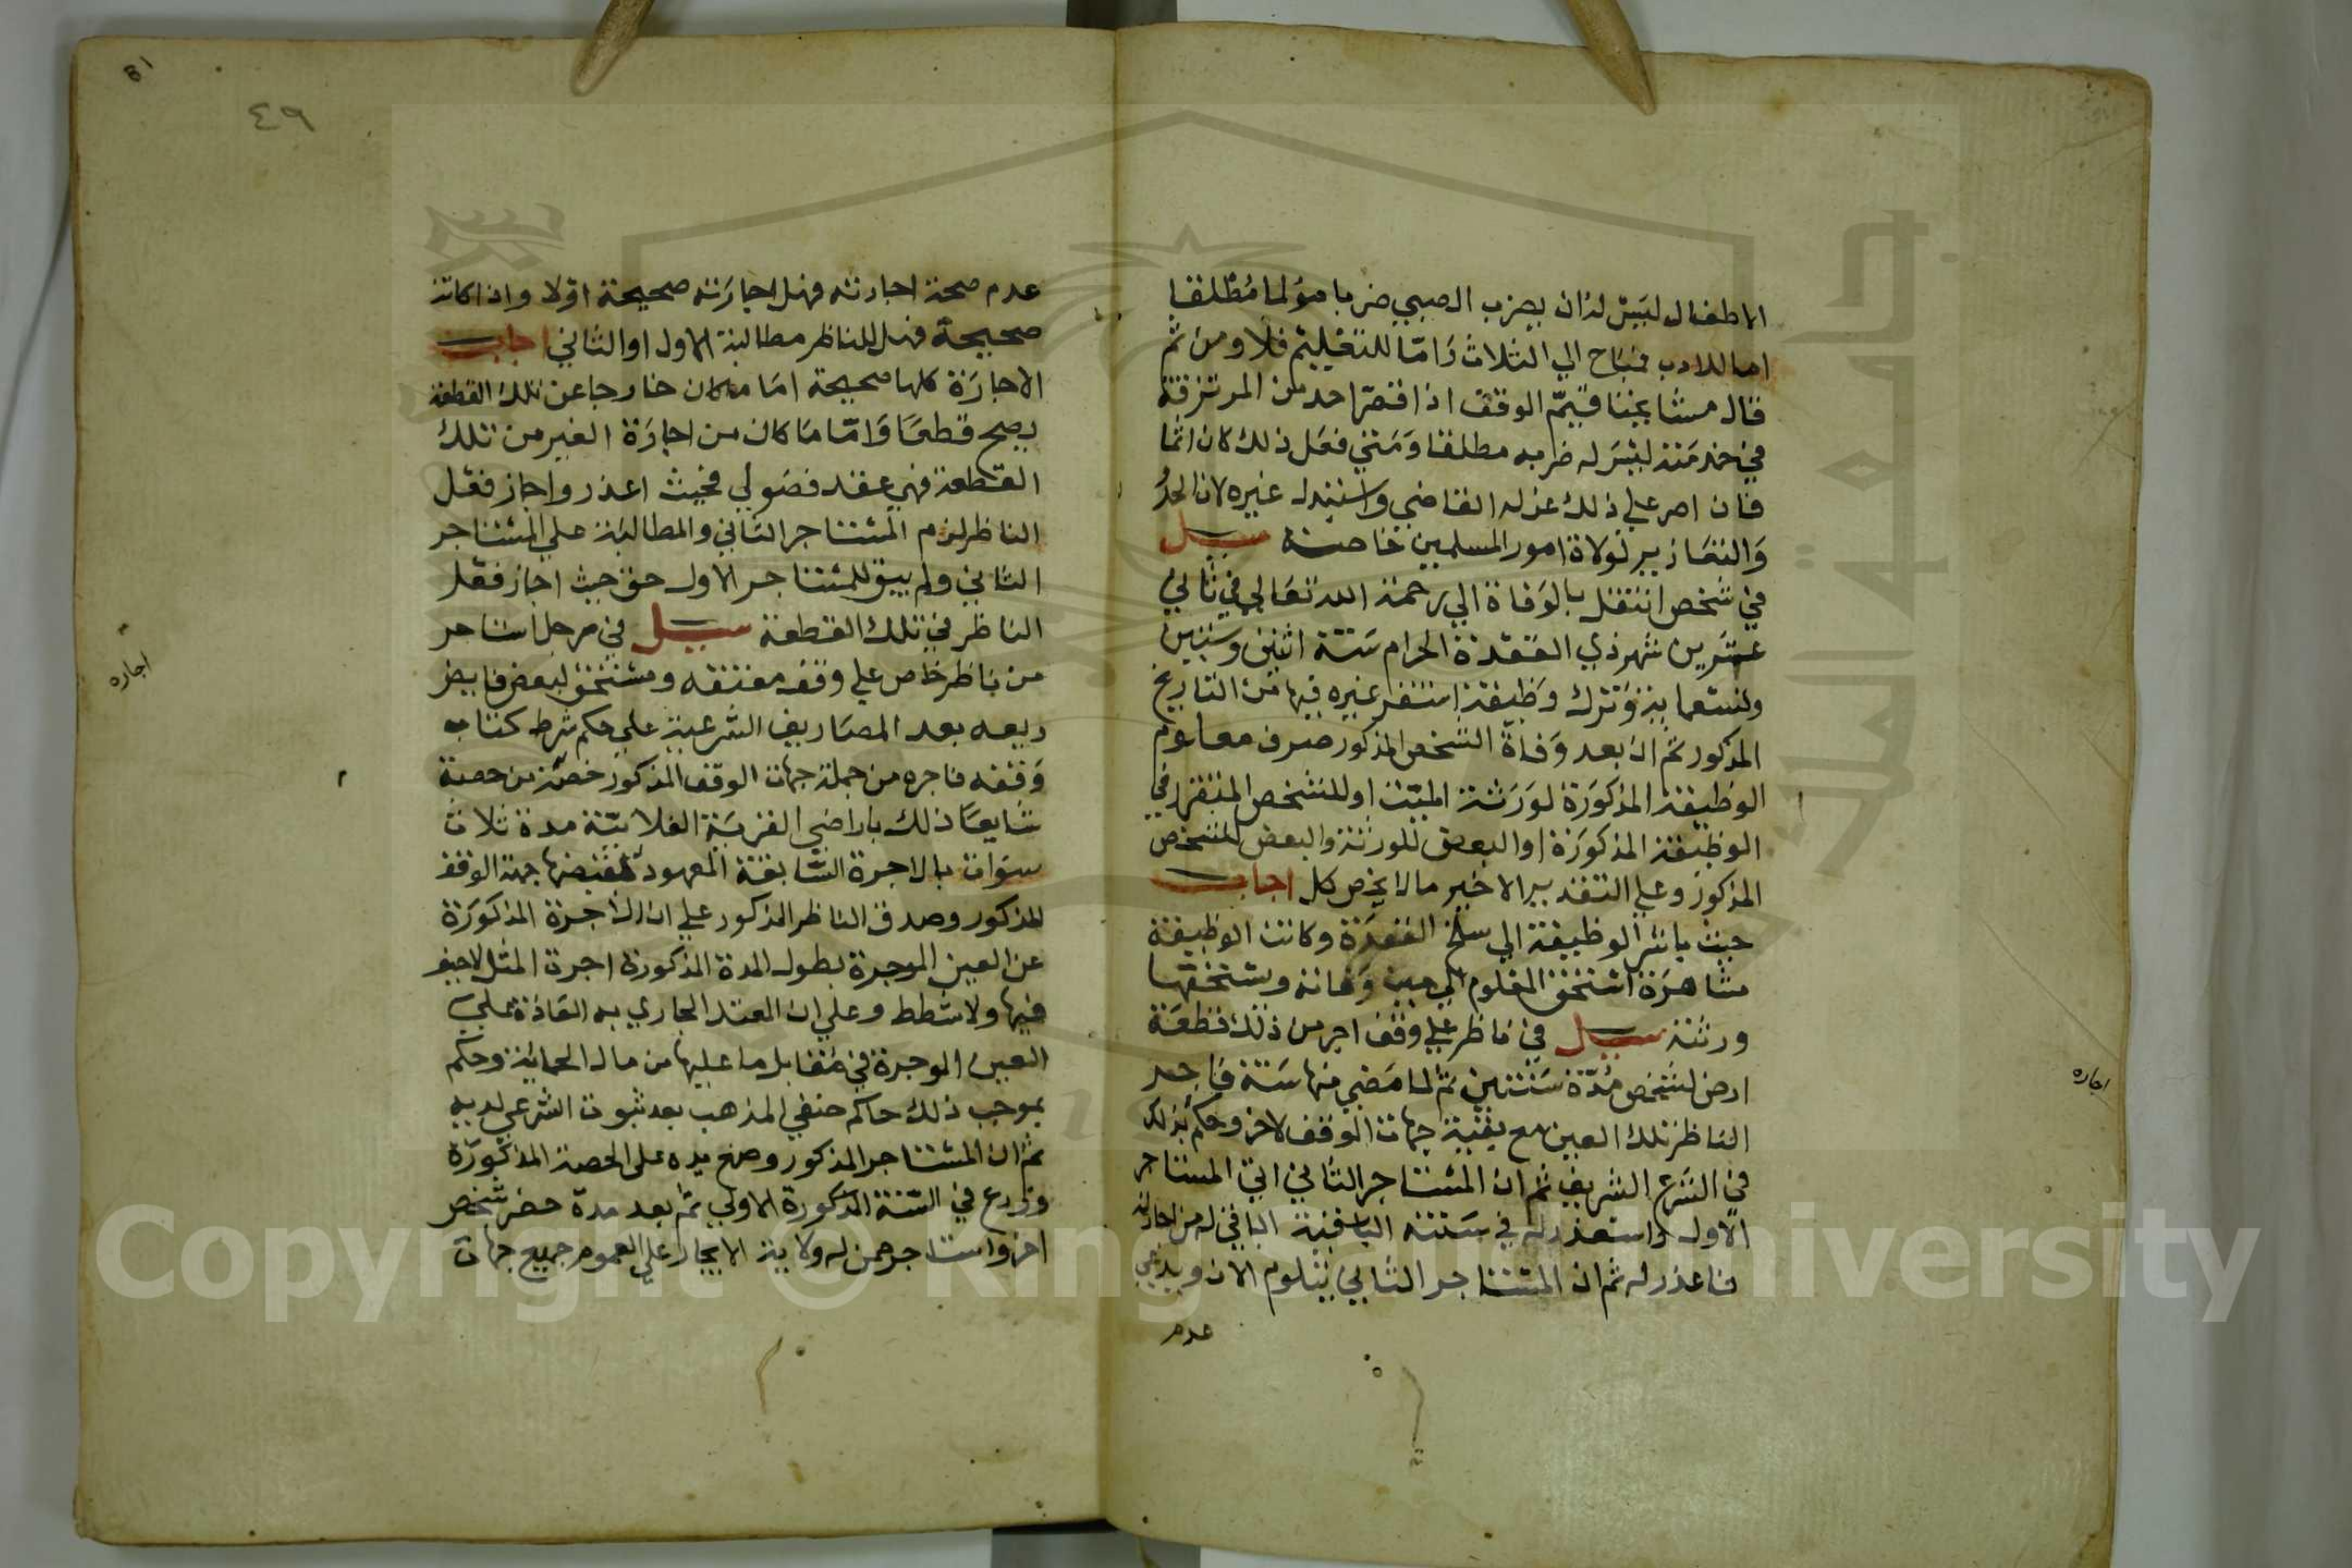 الاطفال ليس له ان يضرب الصبي ضربا مؤلما مطلقا
اما للادب فباح الي الثلاث واما للتعليم فلا ومن ثم
قال مشايخنا قيم الوقف اذا قصر احد من المرتزقة
في خدمته ليس له ضربه مطلقا ومتي فعل ذلك كان اثما
فان اصر علي ذلك عزله القاضي واستبدل غيره لان الحد
والتعازير لولاة امور المسلمين خاصة سيل
في شخص انتقل بالوفاة الي رحمة الله تعالي في ثاني
عشرين شهر ذي القعدة الحرام سنة اثنين وستين
وتسعماية وترك وظيفة استقر غيره فيها من التاريخ
المذكور ثم ان بعد وفاة الشخص المذكور صرف معلوم
الوظيفة المذكورة لورثة الميت او للشخص المتقرر في
الوظيفة المذكورة او البعض للورثة والبعض للشخص
المذكور وعلي التقدير الاخير ماذا يخص كل اجاب
حيث باشر الوظيفة الي سلخ القعدة وكانت الوظيفة
مشاهرة استحق المعلوم الي حين وفاته ويستحقها
ورثته سيل في ناظر علي وقف اجر من ذلك قطعة
ارض لشخص مدة سنتين ثم لما مضي منها سنة فاجر
الناظر تلك العين مع بقية جهات الوقف لاخر وحكم بذلك
في الشرع الشريف ثم ان المستاجر الثاني اتي المستاجر
الاول واستعذر له في سنته الباقية الباقي له من اجارته
فاعذر له ثم ان المستاجر الثاني يتلوم الان ويدعي
عدم
اجاره
٤٩
عدم صحة اجارته فهل اجارته صحيحة اولا واذا كانت
صحيحة فهل للناظر مطالبة الاول او الثاني اجاب
الاجارة كلها صحيحة اما ما كان خارجا عن تلك القطعة
يصح قطعا واما ما كان من اجارة الغير من تلك
القطعة فهي عقد فضولي فحيث اعذر واجاز فعل
الناظر لزم المستاجر الثاني والمطالبة علي المستاجر
الثاني ولم يبق للمستاجر الاول حق حيث اجاز فعل
الناظر في تلك القطعة سيل في رجل استاجر
من ناظر خاص علي وقف معتقه ومستحق لبعض فايض
ريعه بعد المصاريف الشرعية علي حكم شرط كتاب
وقفه فاجره من جملة جهات الوقف المذكور حصة من حصة
شايعا ذلك باراضي القرية الفلانية مدة ثلاث
سنوات بالاجرة السابقة المعهود قبضها جهة الوقف
المذكور وصدق الناظر المذكور علي ان الاجرة المذكورة
عن العين الموجرة بطول المدة المذكورة اجرة المثل لاحيف
فيها ولا شطط وعلي ان العقد الجاري به العادة علي
العين الموجرة في مقابل ما عليها من مال الحماية وحكم
بموجب ذلك حاكم حنفي المذهب بعد ثبوت الشرعي لديه
ثم ان المستاجر المذكور وضع يده على الحصة المذكورة
وزرع في السنة المذكورة الاولي ثم بعد مدة حضر شخص
اخر واستاجر من له ولاية الايجار علي العموم جميع جهات
اجاره
Copyright © King Saud University